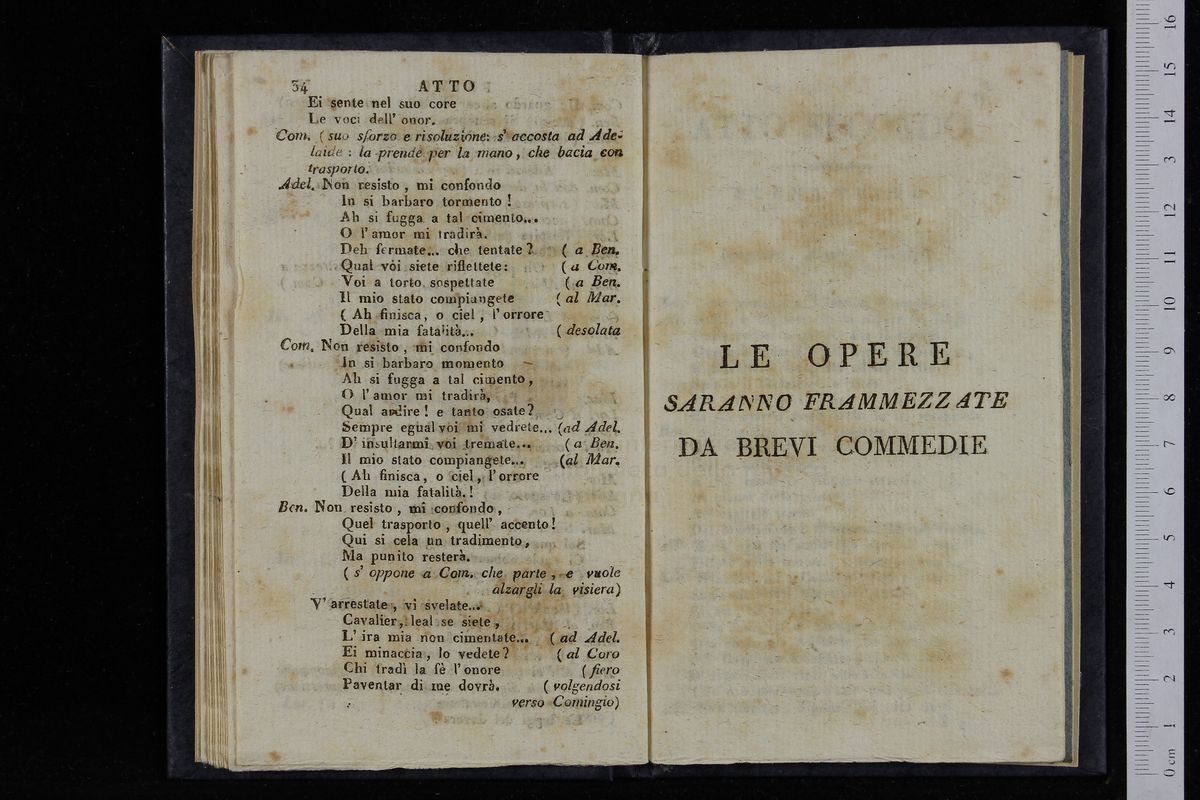 34 ATTO
Ei sente nel suo core
Le voci dell' onor.
Com. ( suo sforzo e risoluzione: s' accosta ad Ade-
laide : la prende per la mano, che bacia con
trasporto.
Adel. Non resisto , mi confondo
In si barbaro tormento !
Ah si fugga a tal cimento...
O l' amor mi tradirà.
Deh fermate... che tentate ? ( a Ben.
Qual vòi siete riflettete: ( a Com.
Voi a torto sospettate ( a Ben.
Il mio stato compiangete ( al Mar.
( Ah finisca, o ciel , l' orrore
Della mia fatalità... ( desolata
Com. Non resisto , mi confondo
In si barbaro momento
Ah si fugga a tal cimento ,
O l' amor mi tradirà,
Qual ardire ! e tanto osate?
Sempre egual voi mi vedrete... (ad Adel.
D' insultarmi voi tremate... ( a Ben.
Il mio stato compiangete... (al Mar.
( Ah finisca, o ciel, l' orrore
Della mia fatalità.!
Ben. Non resisto , mi confondo ,
Quel trasporto , quell' accento!
Qui si cela un tradimento,
Ma punito resterà.
( s' oppone a Com. che parte , e vuole
alzargli la visiera)
V' arrestate , vi svelate...
Cavalier, leal se siete ,
L' ira mia non cimentate... ( ad Adel.
Ei minaccia, lo vedete ? ( al Coro
Chi tradì la fè l' onore ( fiero
Paventar di me dovrà. ( volgendosi
verso Comingio)
LE OPERE
SARANNO FRAMMEZZATE
DA BREVI COMMEDIE
16
15
14
13
12
11
10
9
8
7
6
5
4
3
2
1
0 cm